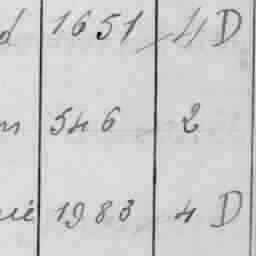 d 1651 4 D
n 546 2
ué 1983 4 D